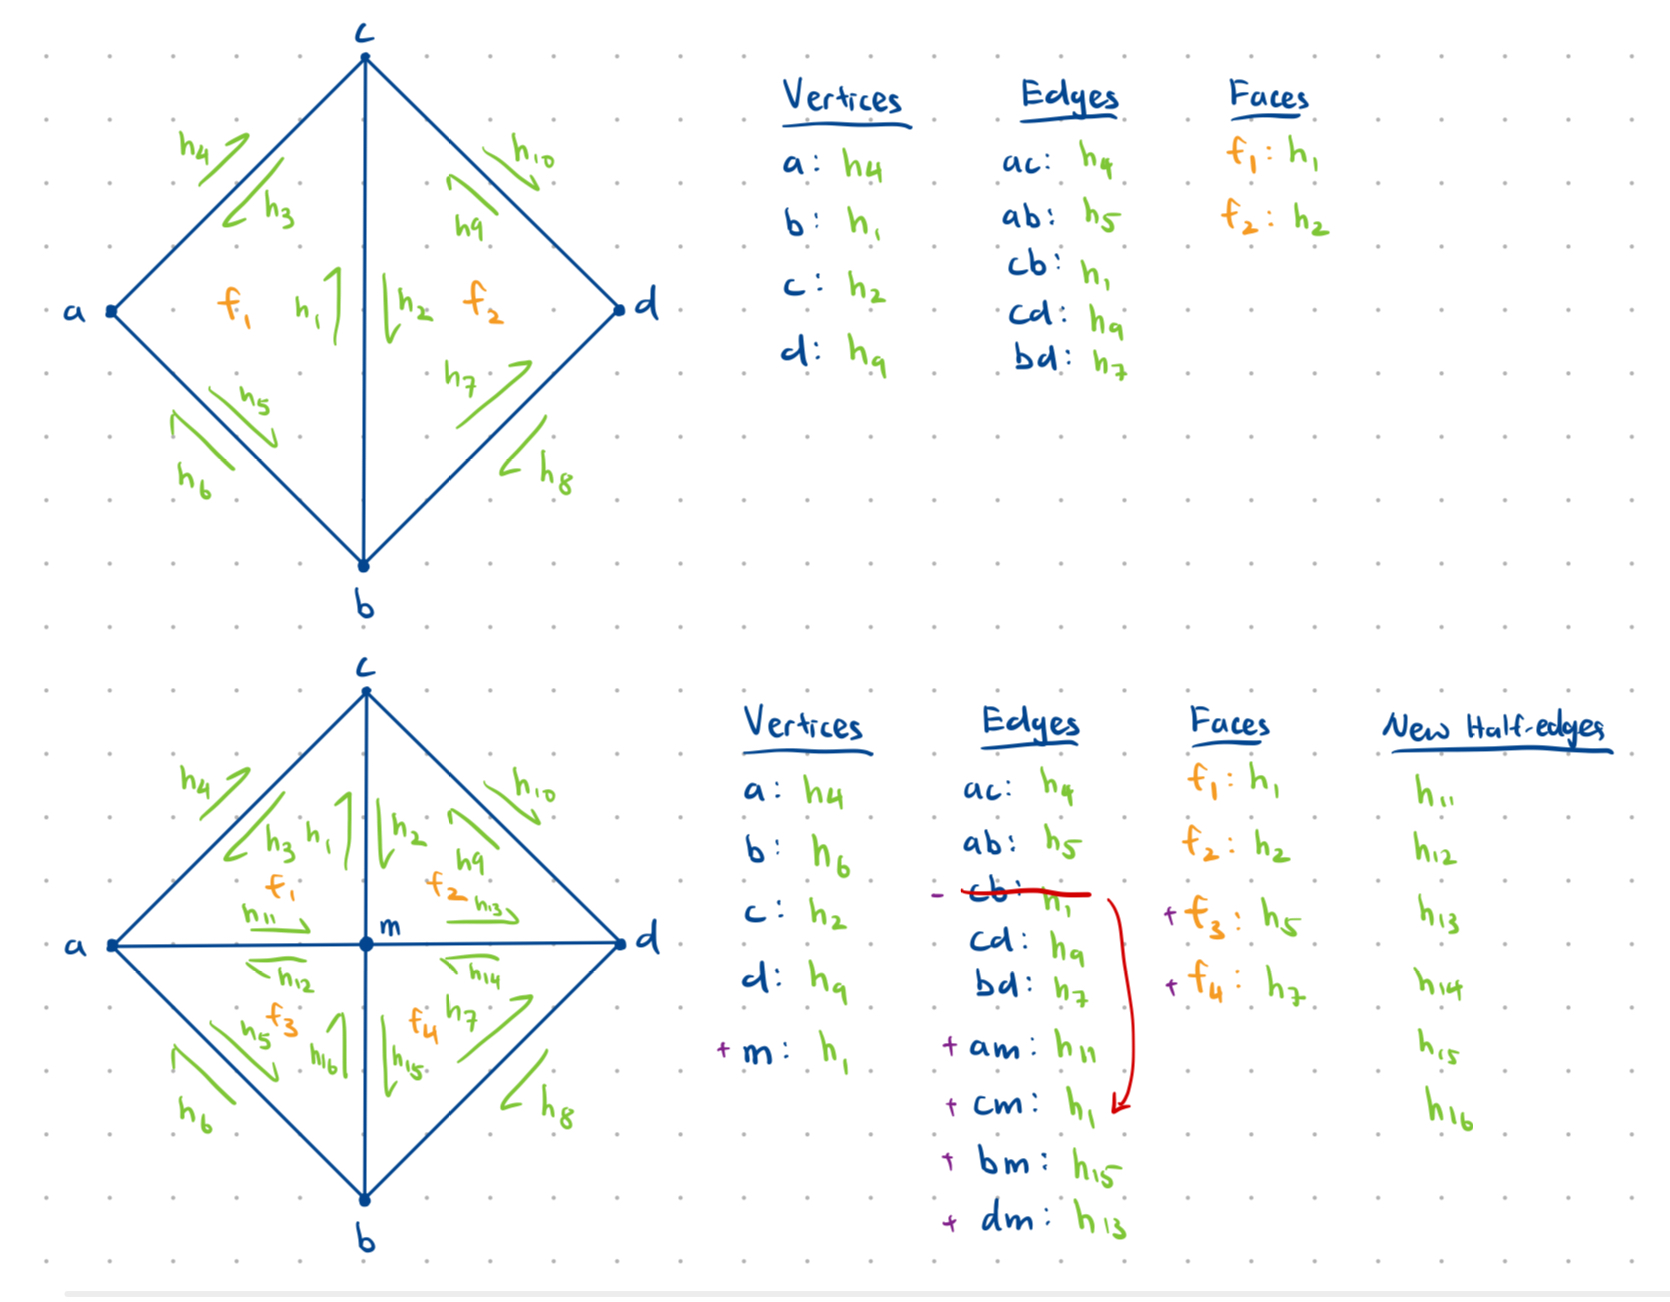 c
h4
h3
h10
h9
a
f1
h1
h2
f2
d
h5
h7
h6
h8
b
Vertices
a: h4
b: h1
c: h2
d: h9
Edges
ac: h4
ab: h5
cb: h1
cd: h9
bd: h7
Faces
f1: h1
f2: h2
c
h4
h3
h1
h2
h10
h9
f1
f2
h11
h13
a
m
d
h12
h14
f3
f4
h5
h16
h15
h7
h6
h8
b
Vertices
a: h4
b: h6
c: h2
d: h9
+ m: h1
Edges
ac: h4
ab: h5
- cb: h1
cd: h9
bd: h7
+ am: h11
+ cm: h1
+ bm: h15
+ dm: h13
Faces
f1: h1
f2: h2
+ f3: h5
+ f4: h7
New Half-edges
h11
h12
h13
h14
h15
h16